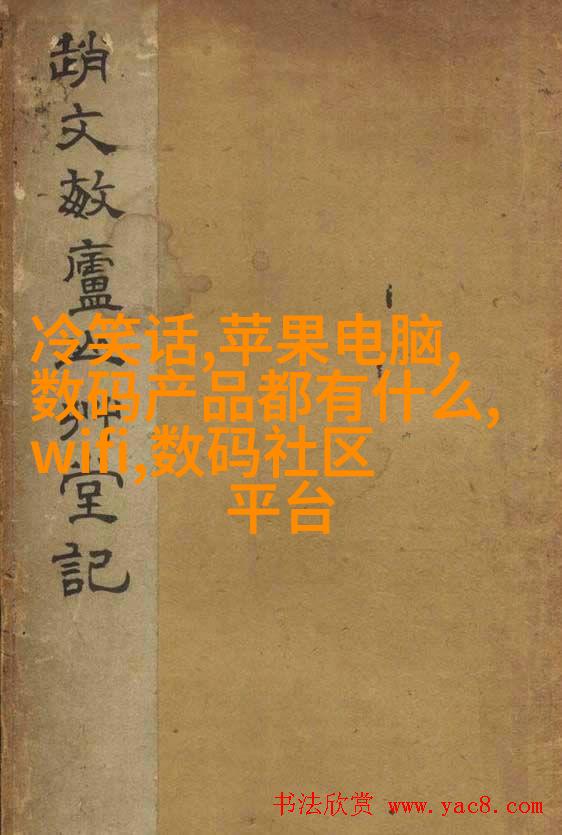 趙文敏廬山艸堂記
冷笑话,苹果电脑,
数码产品都有什么,
wifi,数码社区
平台
书法欣赏 www.yac8.com